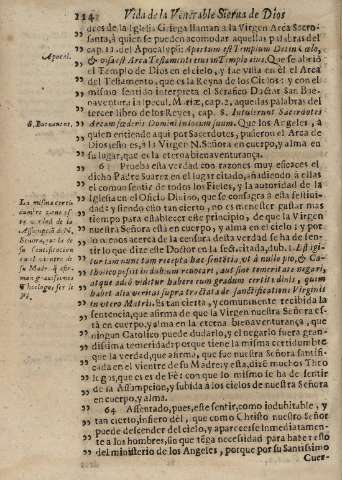 114 Vida de la Venerable Sierua de Dios
dres de la Iglesia Griega llaman a la Virgen Arca Sacro-
santa, à quien se pueden acomodar aquellas palabras del
cap. 11. del Apocalyps: Apertum est Templum Dei in Cœlo,
& visa est Arca Testamenti eius in Templo eius. Que se abrió
el Templo de Dios en el cielo, y fue vista en èl el Arca
del Testamento, que es la Reyna de los Cielos: y con el
mismo sentido interpreta el Serafico Doctor San Bue-
naventura in specul. Mariæ, cap. 2. aquellas palabras del
tercer libro de los Reyes, cap. 8. Intulerunt Sacerdotes
Arcam fœderis Domini in locum suum. Que los Angeles, à
quien entiende aqui por Sacerdotes, pusieron el Arca de
Dios, esto es, à la Virgen N. Señora en cuerpo, y alma en
su lugar, que es la eterna bienaventurança.
63 Prueba esta verdad con razones muy eficaces el
dicho Padre Suarez en el lugar citado, añadiendo à ellas
el comun sentir de todos los Fieles, y la autoridad de la
Iglesia en el Oficio Divino, que se consagra à esta festivi-
dad: y siendo esto tan cierto, no es menester gastar mas
tiempo para establecer este principio, de que la Virgen
nuestra Señora està en cuerpo, y alma en el cielo: y por
lo menos acerca de la censura desta verdad se ha de sen-
tir lo que dize este Doctor en la sect. citada, ibi:
tur iam nunc tam recepta hæc sententia, vt à nullo pio, & Ca-
tholico possit in dubium reuocari, aut sine temeritate negari,
atque adeò videtur habere eum gradum certitudinis, quem
habet alia veritas supra tractata de sanctificatione Virginis
in vtero Matris. Es tan cierta, y comunmente recibida la
sentencia, que afirma de que la Virgen nuestra Señora es-
tà en cuerpo, y alma en la eterna bienaventurança, que
ningun Catolico puede dudarlo, y el negarlo fuera gran-
dissima temeridad; porque tiene la misma certidumbre
que la verdad, que afirma, que fue nuestra Señora santifi-
cada en el vientre de su Madre; y esta, dizē muchos Theo
logos, que es de Fè: con que lo mismo se ha de sentir
de la Assumpcion, y subida à los cielos de nuestra Señora
en cuerpo, y alma.
64 Assentado, pues, este sentir, como indubitable, y
tan cierto, infiero del, que como Christo nuestro Señor
puede descender del cielo, y aparecerse inmediatamen-
te à los hombres, sin que tēga necessidad para hazer esto
del ministerio de los Angeles, porque por su Santissimo
Cuer-
Apocal.
S. Buenauent.
La misma certi-
dumbre tiene es-
ta verdad de la
Assumpciō de N.
Señora, que la de
su santificacion
en el vientre de
su Madre, q̄ afir-
man grauissimos
Theologos ser de
Fè.